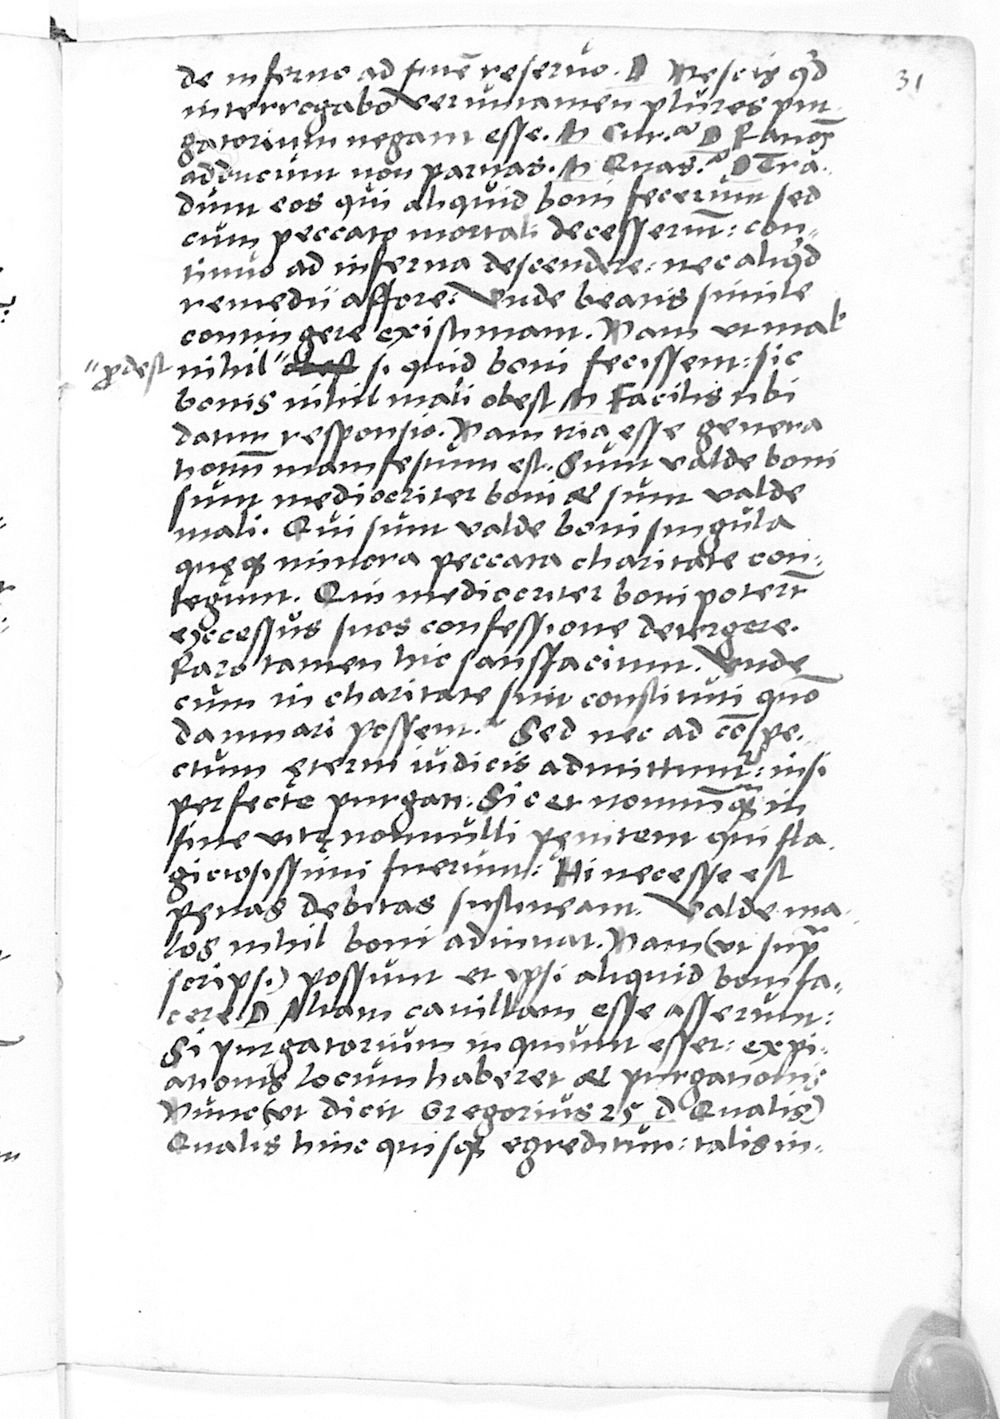 31
de inferno ad finē reseruo. D Nescis q̇d
interrogabo verumtamen plures pur-
gatorium negant esse. M Cur? D Rationes
adducunt non paruas. M Quas? D Tra-
dunt eos qui aliquid boni fecerunt sed
cum peccato mortali decesserint: con-
tinuo ad inferna descendere: nec aliq̇d
remedii affore: Vnde beatis simile
contingere existimant. Nam ut malis
"ꝓdest nihil" obest si quid boni fecissent: sic
bonis nihil mali obest M Facilis tibi
datur responsio. Nam tria esse genera
hoīm manifestum est. Sunt valde boni
sunt mediocriter boni & sunt valde
mali. Qui sunt valde boni singula
quęq; minora peccata charitate con-
tegunt. Qui mediocriter boni poterūt
excessus suos confessione detergere.
Raro tamen hic satisfaciunt. Vnde
cum in charitate sint constituti quō
damnari possent? Sed nec ad cōspe-
ctum ęterni iudicis admittunt᷑: nisi
perfecte purgati. Sic et nonnūq̃; in
fine vitę nonnulli pęnitent qui fla-
giciosissimi fuerunt: Hi necesse est
pęnas debitas sustineant. Valde ma-
los nihil boni adiuuat. Nam (ut supra
scripsi) possunt et ipsi aliquid boni fa-
cere D Aliam cauillam esse asserunt:
Si purgatorium inquiunt esset: expi-
ationis locum haberet & purgationis
Nunc (ut dicit Gregorius 25 d Qualis)
Qualis hinc quisq; egreditur: talis in-